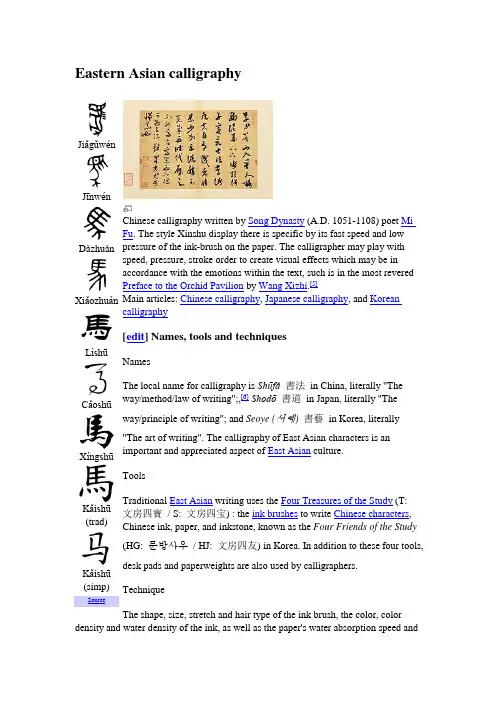 Eastern Asian calligraphy
Jiǎgǔwén
Jīnwén
Dàzhuàn
Xiǎozhuàn
Lìshū
Cǎoshū
Xíngshū
Kǎishū
(trad)
Kǎishū
(simp)
Source
Chinese calligraphy written by Song Dynasty (A.D. 1051-1108) poet Mi
Fu. The style Xinshu display there is specific by its fast speed and low
pressure of the ink-brush on the paper. The calligrapher may play with
speed, pressure, stroke order to create visual effects which may be in
accordance with the emotions within the text, such is in the most revered
Preface to the Orchid Pavilion by Wang Xizhi.[5]
Main articles: Chinese calligraphy, Japanese calligraphy, and Korean
calligraphy
[edit] Names, tools and techniques
Names
The local name for calligraphy is Shūfǎ 書法 in China, literally "The
way/method/law of writing";,[6] Shodō 書道 in Japan, literally "The
way/principle of writing"; and Seoye (서예) 書藝 in Korea, literally
"The art of writing". The calligraphy of East Asian characters is an
important and appreciated aspect of East Asian culture.
Tools
Traditional East Asian writing uses the Four Treasures of the Study (T:
文房四寶 / S: 文房四宝) : the ink brushes to write Chinese characters,
Chinese ink, paper, and inkstone, known as the Four Friends of the Study
(HG: 문방사우 / HJ: 文房四友) in Korea. In addition to these four tools,
desk pads and paperweights are also used by calligraphers.
Technique
The shape, size, stretch and hair type of the ink brush, the color, color
density and water density of the ink, as well as the paper's water absorption speed and